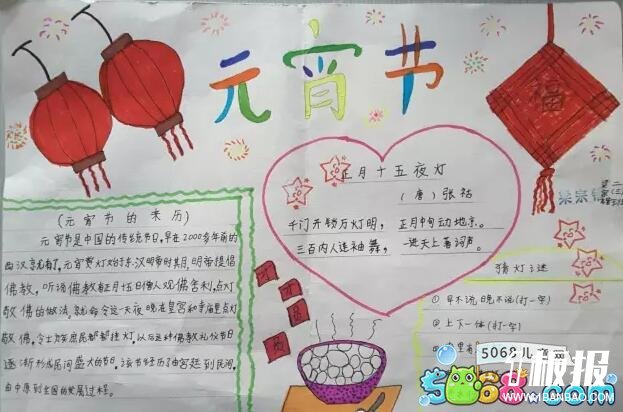 元宵节
福
(元宵节的来历)
元宵节是中国的传统节日,早在2000多年前的
西汉就有了,元宵赏灯始于东汉明帝时期,明帝提倡
佛教,听说佛教有正月十五日僧人观佛舍利,点灯
敬佛的做法,就命令这一天夜晚在皇宫和寺庙里点灯
敬佛,令士族庶民都挂灯,以后这种佛教礼仪节日
逐渐形成民间盛大的节日,该节经历了由宫廷到民间,
由中原到全国的发展过程。
正月十五夜灯
(唐)张祜
千门开锁万灯明,正月中旬动地京。
三百内人连袖舞,一进天上著词声。
猜灯谜
①早不说晚不说(打一字)
②上下一体(打一字)
5068儿童网
5068.com
板报
WWW.41BANBAO.COM